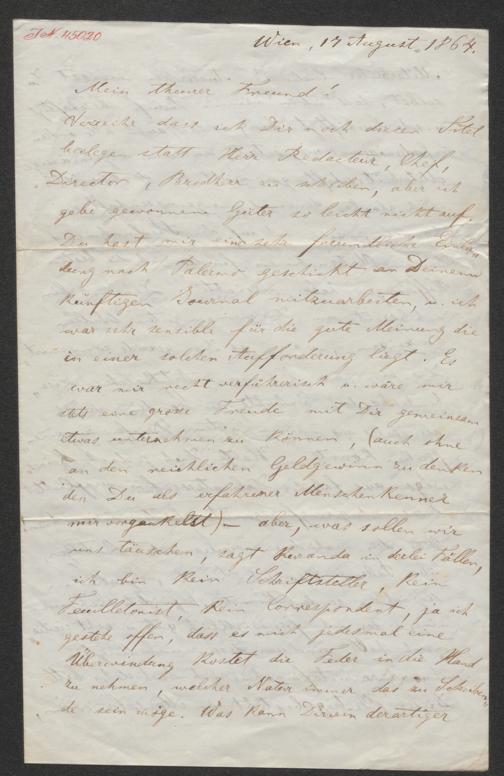 J.N. 45020
Wien, 17 August 1864.
Mein theurer Freund!
Verzeihe dass ich Dir noch diesen Titel
beilegen statt Herr Redacteur, Chef,
Director, zu schreiben, aber ich
gebe gewonnene Güter so leicht nicht auf.
Du hast mir eine sehr freundliche Einla
dung nach Palermo geschickt an Deinem
künftigen Journal mitzuarbeiten, u. ich
war sehr sensible für die gute Meinung die
in einer solchen Aufforderung liegt. Es
war mir recht verführerisch u. wäre mir
stets eine grosse Freude mit Dir gemeinsam
etwas unternehmen zu können, (auch ohne
an den reichlichen Geldgewinn zu denken
den Du als erfahrener Menschenkenner
mir vorgaukelst) – aber, was sollen wir
uns täuschen, sagt Kuranda in Fällen,
ich bin kein Schriftsteller, kein
Feuilletonist, kein Correspondent, ja ich
gestehe offen, dass es mich jedesmal eine
Überwindung kostet die Feder in die Hand
zu nehmen, welcher Natur immer das zu Schreiben
de sein möge. Was kann Dir ein derartiger